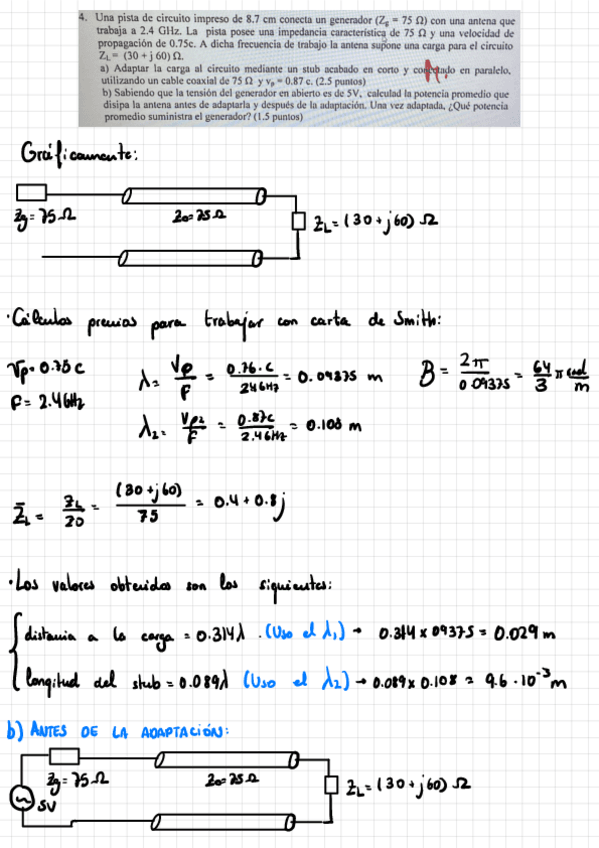 4. Una pista de circuito impreso de 8.7 cm conecta un generador (Zg = 75 Ω) con una antena que
trabaja a 2.4 GHz. La pista posee una impedancia característica de 75 Ω y una velocidad de
propagación de 0.75c. A dicha frecuencia de trabajo la antena supone una carga para el circuito
ZL = (30 + j 60) Ω.
a) Adaptar la carga al circuito mediante un stub acabado en corto y conectado en paralelo,
utilizando un cable coaxial de 75 Ω y vp = 0.87 c. (2.5 puntos)
b) Sabiendo que la tensión del generador en abierto es de 5V, calculad la potencia promedio que
disipa la antena antes de adaptarla y después de la adaptación. Una vez adaptada, ¿Qué potencia
promedio suministra el generador? (1.5 puntos)
Gráficamente:
Zg = 75 Ω
Zo = 75 Ω
ZL = (30 + j60) Ω
· Cálculos previos para trabajar con carta de Smith:
Vp = 0.75 c
F = 2.4 GHz
λ = Vp / F = 0.76 · c / 24 GHz = 0.09375 m
B = 2π / 0.09375 = 64/3 π rad/m
λ2 = Vp2 / F = 0.87c / 2.4 GHz = 0.108 m
Z̄L = ZL / Zo = (30 + j60) / 75 = 0.4 + 0.8j
· Los valores obtenidos son los siguientes:
distancia a la carga = 0.314λ . (Uso el λ1) → 0.314 x 09375 = 0.029 m
longitud del stub = 0.089λ (Uso el λ2) → 0.089 x 0.108 = 9.6 · 10⁻³ m
b) ANTES DE LA ADAPTACIÓN:
Zg = 75 Ω
Zo = 75 Ω
ZL = (30 + j60) Ω
5V